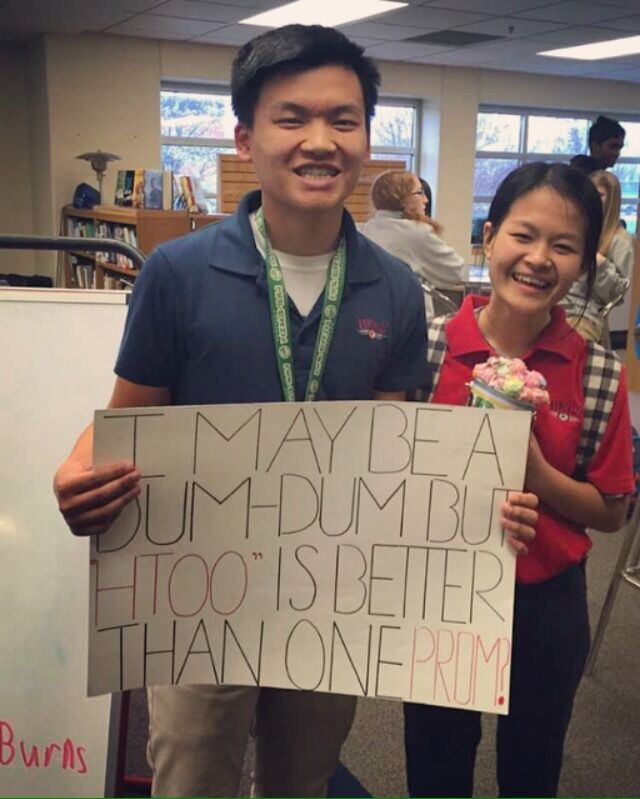 I MAY BE A
DUM-DUM BUT
"HTOO" IS BETTER
THAN ONE PROM?
Burns